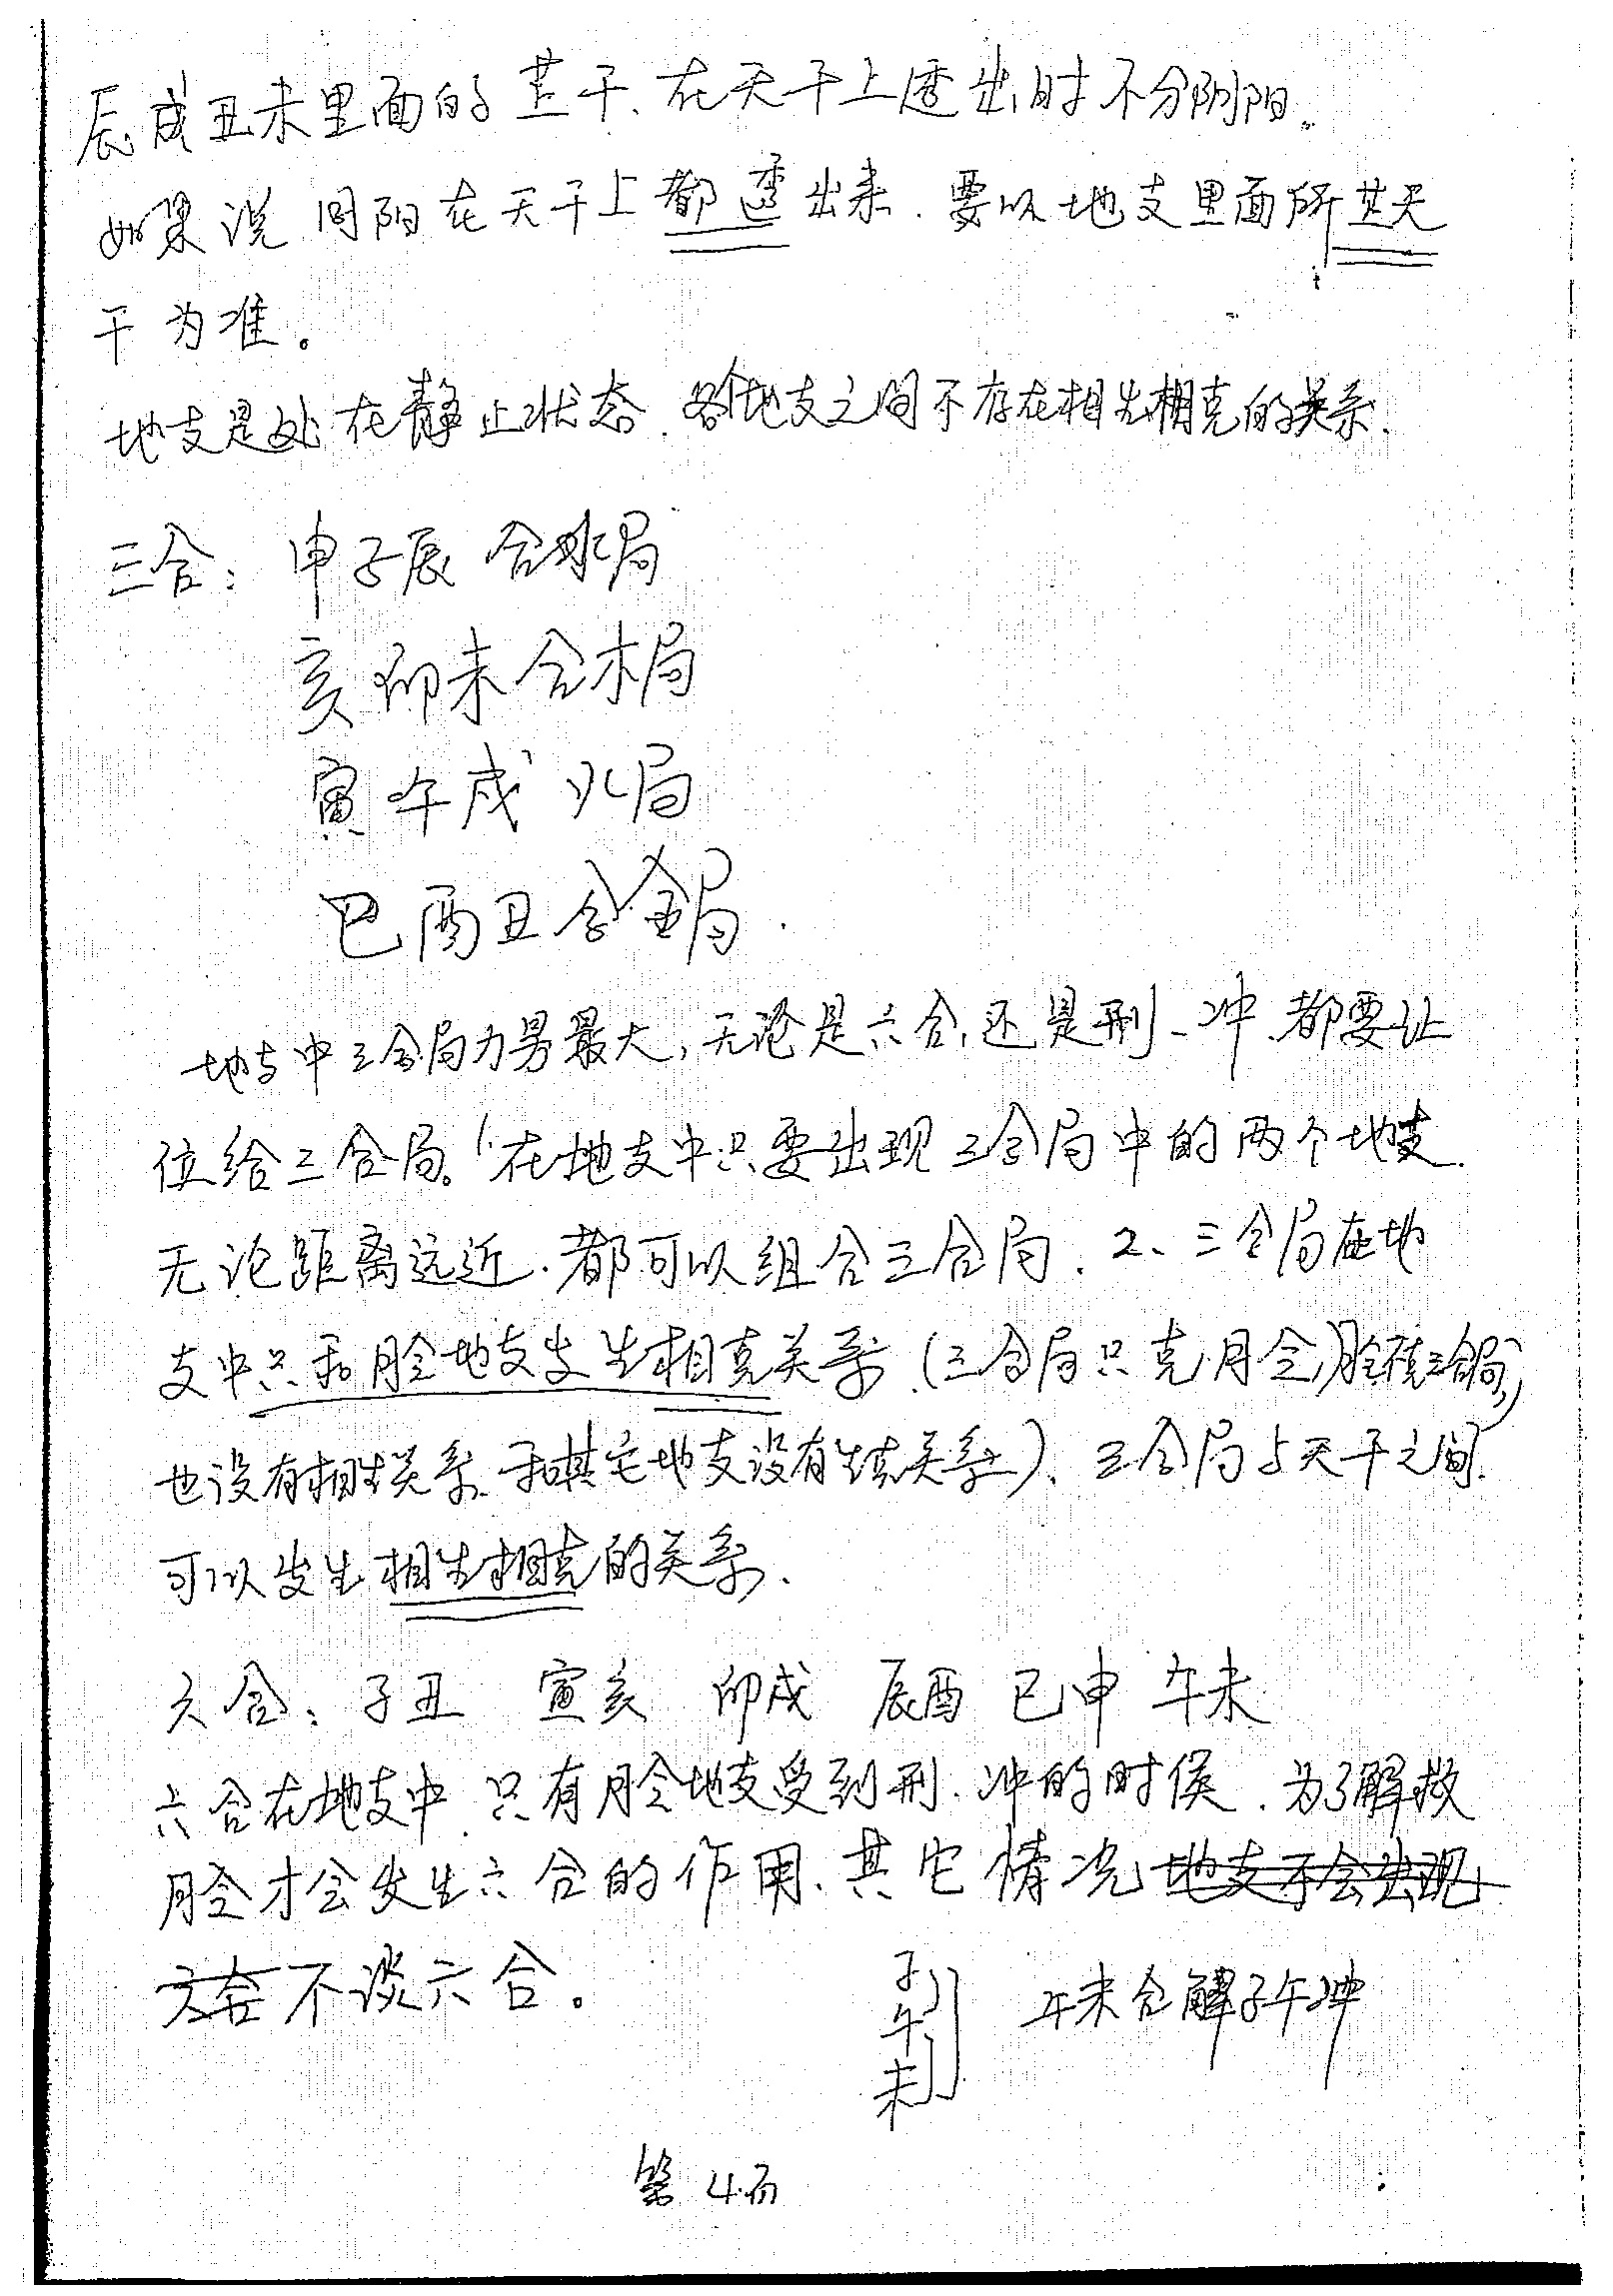 辰戌丑未里面的芷干、在天干上透出时不分阴阳。
如果说阴阳在天干上都透出来.要以地支里面所芷天
干为准。
地支是处在静止状态.各个地支之间不存在相生相克的关系.
三合:申子辰 合水局
亥卯未合木局
寅午戌火局
巳酉丑合金局.
地支中三合局力量最大,无论是六合,还是刑、冲.都要让
位给三合局。1.在地支中只要出现三合局中的两个地支.
无论距离远近.都可以组合三合局.2、三合局在地
支中只和月令地支发生相克关系.(三合局只克月令,月令不克三合局,
也没有相生关系.和其它地支没有生克关系)、三合局与天干之间
可以发生相生相克的关系.
六合:子丑 寅亥 卯戌 辰酉 巳申 午未
六合在地支中.只有月令地支受到刑、冲的时侯.为了解救
月令才会发生六合的作用、其它情况地支不会出现
六合不谈六合。
子
午
未
午未合解子午冲
第4页